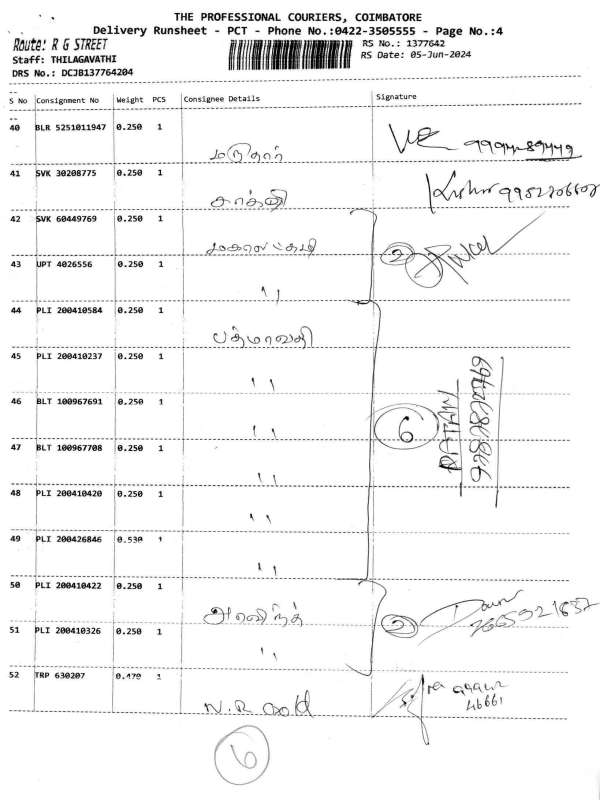 THE PROFESSIONAL COURIERS, COIMBATORE
Delivery Runsheet - PCT - Phone No.:0422-3505555 - Page No.:4
Route: R G STREET
RS No.: 1377642
Staff: THILAGAVATHI
RS Date: 05-Jun-2024
DRS No.: DCJB137764204
S No Consignment No Weight PCS Consignee Details Signature
40 BLR 5251011947 0.250 1
41 SVK 30208775 0.250 1
சாந்தி
42 SVK 60449769 0.250 1
மகாலட்சுமி
2
43 UPT 4026556 0.250 1
''
44 PLI 200410584 0.250 1
பத்மாவதி
45 PLI 200410237 0.250 1
''
46 BLT 100967691 0.250 1
''
6
RATAN
47 BLT 100967708 0.250 1
''
48 PLI 200410420 0.250 1
''
49 PLI 200426846 0.530 1
''
50 PLI 200410422 0.250 1
அரவிந்த்
2
51 PLI 200410326 0.250 1
''
52 TRP 630207 0.470 1
N.R Gold
6